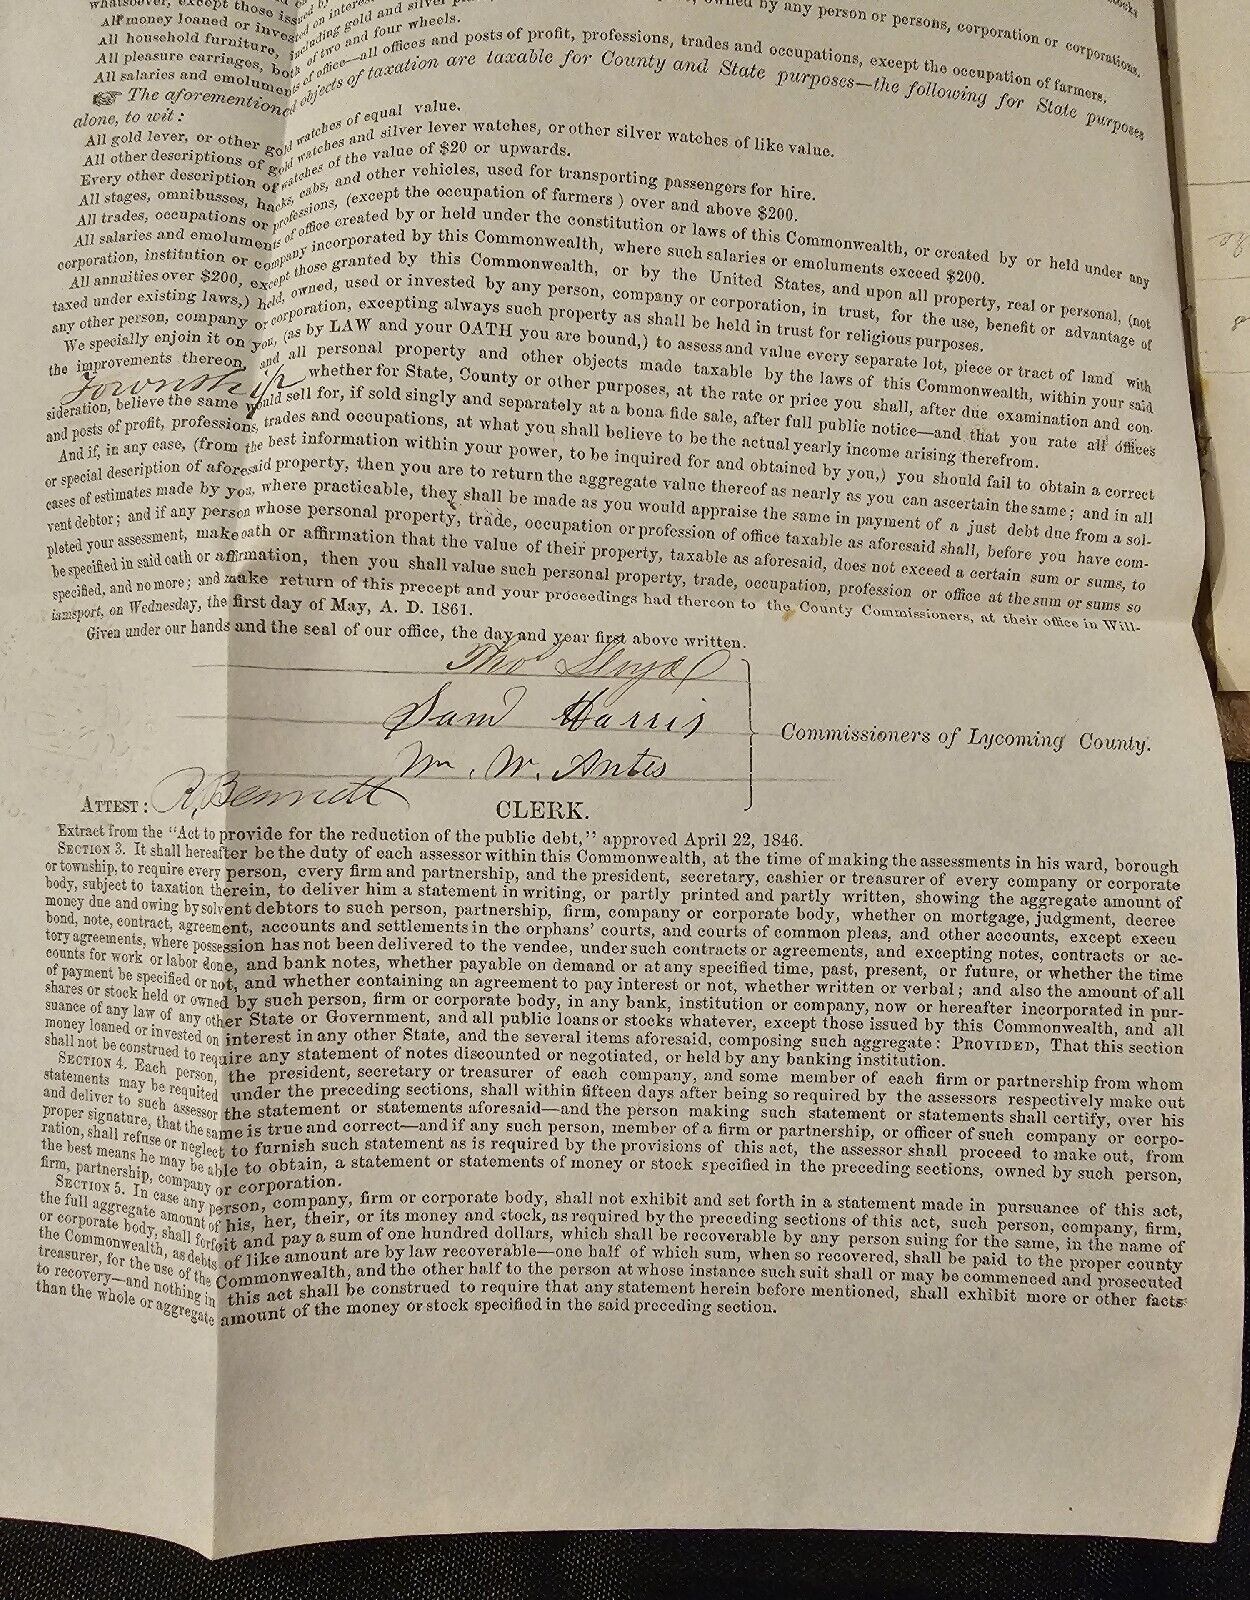 whatsoever, except those issued by
All money loaned or invested on interest
owned by any person or persons, corporation or corporations.
All household furniture, including gold and silver
All pleasure carriages, both of two and four wheels.
All salaries and emoluments of office—all offices and posts of profit, professions, trades and occupations, except the occupation of farmers.
☞ The aforementioned objects of taxation are taxable for County and State purposes—the following for State purposes
alone, to wit:
All gold lever, or other gold watches of equal value.
All other descriptions of gold watches and silver lever watches, or other silver watches of like value.
Every other description of watches of the value of $20 or upwards.
All stages, omnibusses, hacks, cabs, and other vehicles, used for transporting passengers for hire.
All trades, occupations or professions, (except the occupation of farmers) over and above $200.
All salaries and emoluments of office created by or held under the constitution or laws of this Commonwealth, or created by or held under any
corporation, institution or company incorporated by this Commonwealth, where such salaries or emoluments exceed $200.
All annuities over $200, except those granted by this Commonwealth, or by the United States, and upon all property, real or personal, (not
taxed under existing laws,) held, owned, used or invested by any person, company or corporation, in trust, for the use, benefit or advantage of
any other person, company or corporation, excepting always such property as shall be held in trust for religious purposes.
We specially enjoin it on you, (as by LAW and your OATH you are bound,) to assess and value every separate lot, piece or tract of land with
the improvements thereon, and all personal property and other objects made taxable by the laws of this Commonwealth, within your said
Township whether for State, County or other purposes, at the rate or price you shall, after due examination and con-
sideration, believe the same would sell for, if sold singly and separately at a bona fide sale, after full public notice—and that you rate all offices
and posts of profit, professions, trades and occupations, at what you shall believe to be the actual yearly income arising therefrom.
And if, in any case, (from the best information within your power, to be inquired for and obtained by you,) you should fail to obtain a correct
or special description of aforesaid property, then you are to return the aggregate value thereof as nearly as you can ascertain the same; and in all
cases of estimates made by you, where practicable, they shall be made as you would appraise the same in payment of a just debt due from a sol-
vent debtor; and if any person whose personal property, trade, occupation or profession of office taxable as aforesaid shall, before you have com-
pleted your assessment, make oath or affirmation that the value of their property, taxable as aforesaid, does not exceed a certain sum or sums, to
be specified in said oath or affirmation, then you shall value such personal property, trade, occupation, profession or office at the sum or sums so
specified, and no more; and make return of this precept and your proceedings had thereon to the County Commissioners, at their office in Will-
iamsport, on Wednesday, the first day of May, A. D. 1861.
Given under our hands and the seal of our office, the day and year first above written.
Thos Lloyd
Saml Harris
Wm. W. Antes
Commissioners of Lycoming County.
ATTEST: R. Bennett CLERK.
Extract from the "Act to provide for the reduction of the public debt," approved April 22, 1846.
SECTION 3. It shall hereafter be the duty of each assessor within this Commonwealth, at the time of making the assessments in his ward, borough
or township, to require every person, every firm and partnership, and the president, secretary, cashier or treasurer of every company or corporate
body, subject to taxation therein, to deliver him a statement in writing, or partly printed and partly written, showing the aggregate amount of
money due and owing by solvent debtors to such person, partnership, firm, company or corporate body, whether on mortgage, judgment, decree
bond, note, contract, agreement, accounts and settlements in the orphans' courts, and courts of common pleas, and other accounts, except execu
tory agreements, where possession has not been delivered to the vendee, under such contracts or agreements, and excepting notes, contracts or ac-
counts for work or labor done, and bank notes, whether payable on demand or at any specified time, past, present, or future, or whether the time
of payment be specified or not, and whether containing an agreement to pay interest or not, whether written or verbal; and also the amount of all
shares or stock held or owned by such person, firm or corporate body, in any bank, institution or company, now or hereafter incorporated in pur-
suance of any law of any other State or Government, and all public loans or stocks whatever, except those issued by this Commonwealth, and all
money loaned or invested on interest in any other State, and the several items aforesaid, composing such aggregate: PROVIDED, That this section
shall not be construed to require any statement of notes discounted or negotiated, or held by any banking institution.
SECTION 4. Each person, the president, secretary or treasurer of each company, and some member of each firm or partnership from whom
statements may be required under the preceding sections, shall within fifteen days after being so required by the assessors respectively make out
and deliver to such assessor the statement or statements aforesaid—and the person making such statement or statements shall certify, over his
proper signature, that the same is true and correct—and if any such person, member of a firm or partnership, or officer of such company or corpo-
ration, shall refuse or neglect to furnish such statement as is required by the provisions of this act, the assessor shall proceed to make out, from
the best means he may be able to obtain, a statement or statements of money or stock specified in the preceding sections, owned by such person,
firm, partnership, company or corporation.
SECTION 5. In case any person, company, firm or corporate body, shall not exhibit and set forth in a statement made in pursuance of this act,
the full aggregate amount of his, her, their, or its money and stock, as required by the preceding sections of this act, such person, company, firm,
or corporate body, shall forfeit and pay a sum of one hundred dollars, which shall be recoverable by any person suing for the same, in the name of
the Commonwealth, as debts of like amount are by law recoverable—one half of which sum, when so recovered, shall be paid to the proper county
treasurer, for the use of the Commonwealth, and the other half to the person at whose instance such suit shall or may be commenced and prosecuted
to recovery—and nothing in this act shall be construed to require that any statement herein before mentioned, shall exhibit more or other facts
than the whole or aggregate amount of the money or stock specified in the said preceding section.